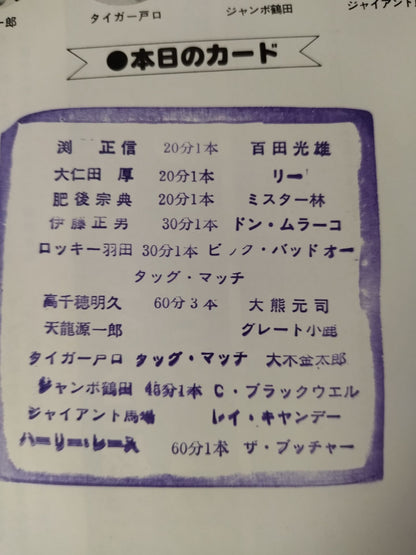 一郎
タイガー戸口
ジャンボ鶴田
ジャイアント
●本日のカード
渕 正信 20分1本 百田光雄
大仁田 厚 20分1本 リー
肥後宗典 20分1本 ミスター林
伊藤正男 30分1本 ドン・ムラーコ
ロッキー羽田 30分1本 ビック・バッドオー
タッグ・マッチ
高千穂明久 60分3本 大熊元司
天龍源一郎 グレート小鹿
タイガー戸口 タッグ・マッチ 大木金太郎
ジャンボ鶴田 45分1本 C・ブラックウエル
ジャイアント馬場 レイ・キャンデー
ハーリー・レース 60分1本 ザ・ブッチャー